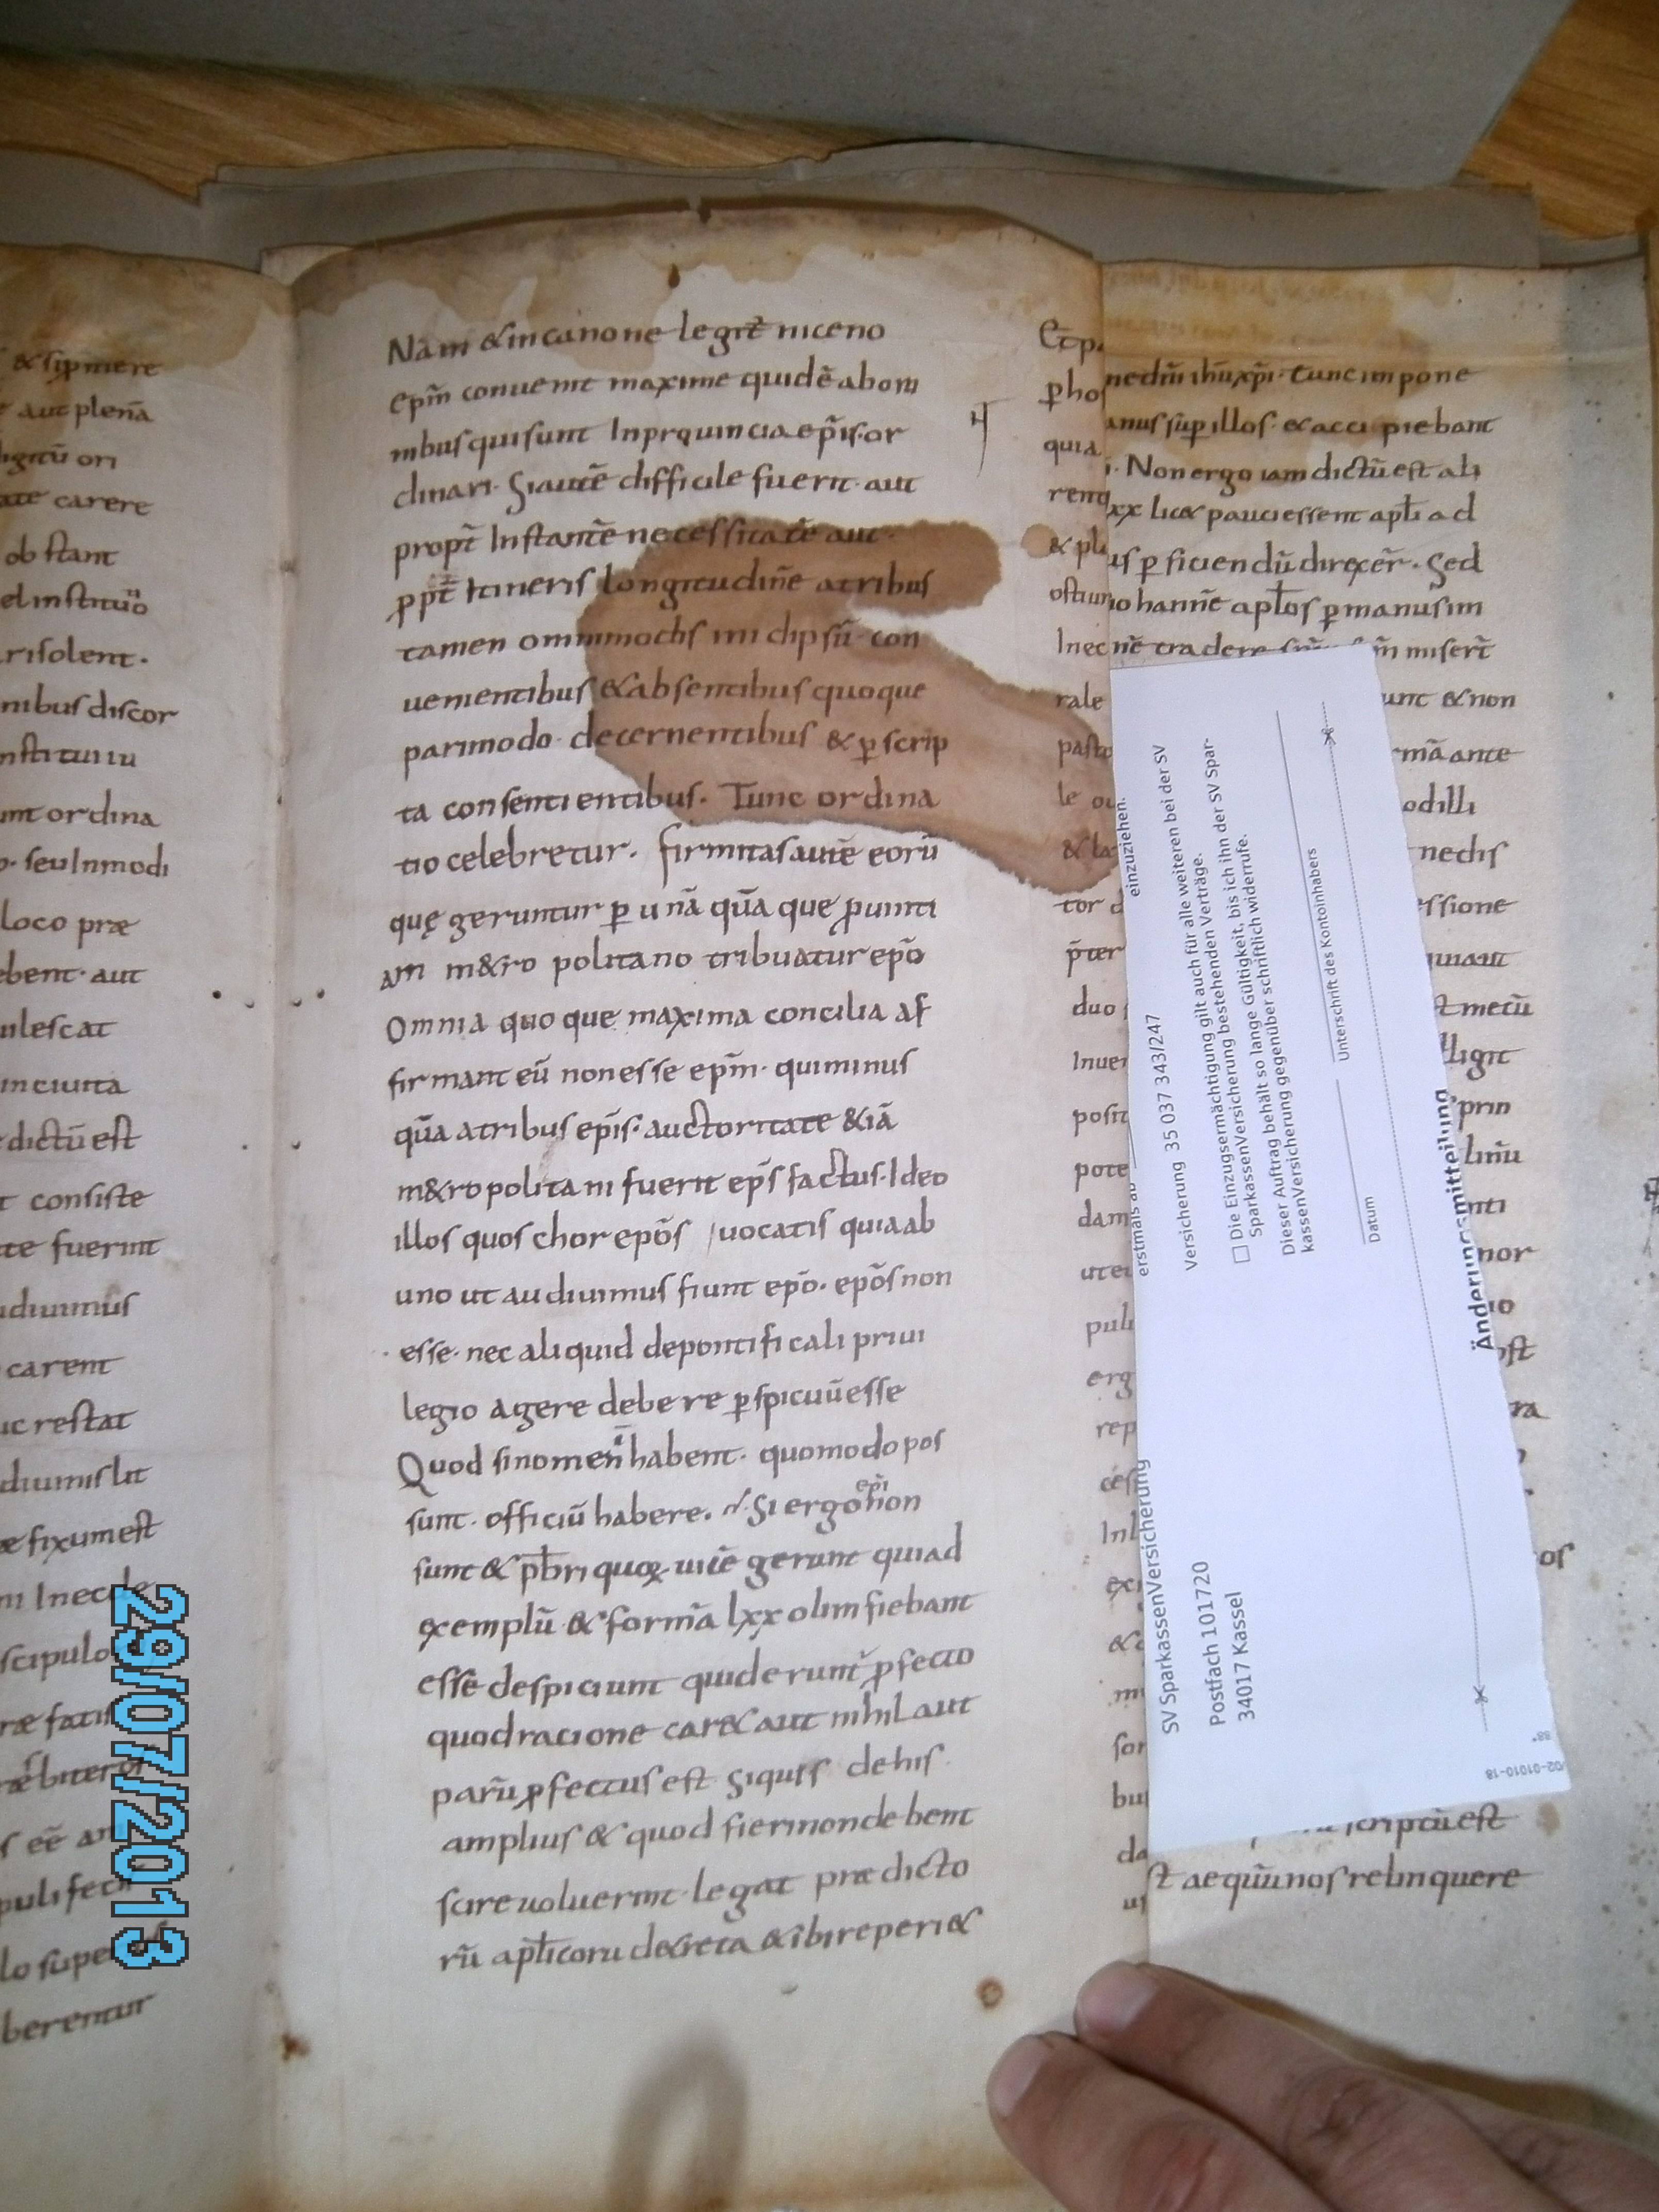 & sip mere
aut plenā
digitū ori
ate carere
ob stant
vel instituto
risolent.
nibus discor
nstitutu
unt ordina
o. seu Inmodi
loco præ
ebent. aut
ulescat
inciuita
dictū est
t consiste
te fuerint
udiuimus
carent
uc restat
diuinis lit
æ fixum est
ni Inecclę
scipulo
ræ fatis
s eē an
puli fecit
lo super
berentur
Nam & in canone legit̄ niceno
ep̄m conuenit maxime quidē ab om
nibus qui sunt Inprouincia ep̄is. or
dinari. Si autē difficile fuerit. aut
propt̄ Instantē necessitatē aut.
ꝓpt̄ Itineris longitudinē a tribus
tamen omnimodis in idipsū. con
uenientibus & absentibus quoque
parimodo. decernentibus & ꝑ scrip
ta consentientibus. Tunc ordina
tio celebretur. firmitas autē eorū
quę geruntur ꝑ unā quā que ꝓuinti
am m&ropolitano tribuatur ep̄o
Omnia quoque maxima concilia af
firmant eū non esse ep̄m. qui minus
quā a tribus ep̄is. auctoritate &iā
m&ropolitani fuerit ep̄s factus. Ideo
illos quos chor ep̄os uocatis quia ab
uno ut audiuimus fiunt ep̄o. ep̄os non
esse. nec aliquid de pontificali priui
legio agere debere ꝑspicuū esse
Quod si nomen habent. quomodo pos
sunt. officiū habere. Si ergo ep̄i non
sunt & p̄bri quoꝝ uicē gerunt qui ad
exemplū & formā lxx olim fiebant
esse despiciunt quid erunt ꝓfecto
quod racione car& aut nihil aut
parū ꝓfectus est Siquis de his
amplius & quod fieri non debent
scire uoluerint. legat prædicto
rū ap̄licorū decreta & ibi reperi&
pho
quia
rale
tor
p̄ter
duo
Inuen
posit
pote
dam
nedm̄ ih̄u xp̄i. tunc impone
anus suꝑ illos. & acci piebant
i. Non ergo iam dictū est ali
xx lic& pauci essent apl̄i ad
us ꝑ ficiendū direxer̄. Sed
iohannē apl̄os ꝑ manus im
nē tradere
misert̄
unt & non
rmā ante
odilli
nedis
ssione
quiaut
t metū
lligit
prin
linū
nti
mor
ost
ra
os
scriptū est
st aequū nos relinquere
einzuziehen.
erstmals ab
Versicherung 35 037 343/247
☐ Die Einzugsermächtigung gilt auch für alle weiteren bei der SV
SparkassenVersicherung bestehenden Verträge.
Dieser Auftrag behält so lange Gültigkeit, bis ich ihn der SV Spar-
kassenVersicherung gegenüber schriftlich widerrufe.
Datum
Unterschrift des Kontoinhabers
Änderungsmitteilung
SV SparkassenVersicherung
Postfach 101720
34017 Kassel
02-01010-18
88°
29/07/2013